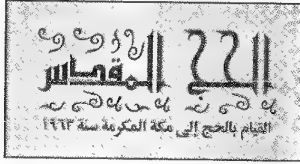 الحج المقدس
القيام بالحج إلى مكة المكرمة سنة ١٩٦٢